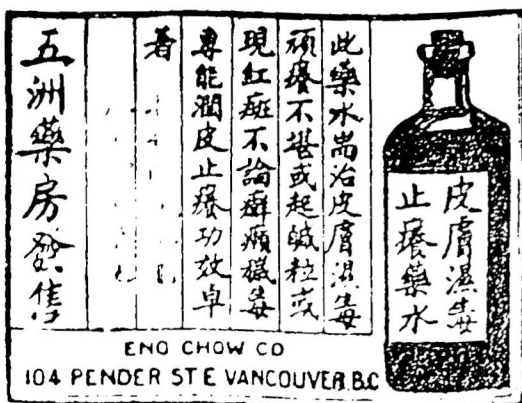 皮膚濕毒
止癢藥水
此藥水耑治皮膚濕毒
頑癢不堪或起鹹粒或
現紅斑不論癬癩鹹毒
專能潤皮止癢功效卓
著
五洲藥房發售
ENG CHOW CO
104 PENDER ST E VANCOUVER, B.C